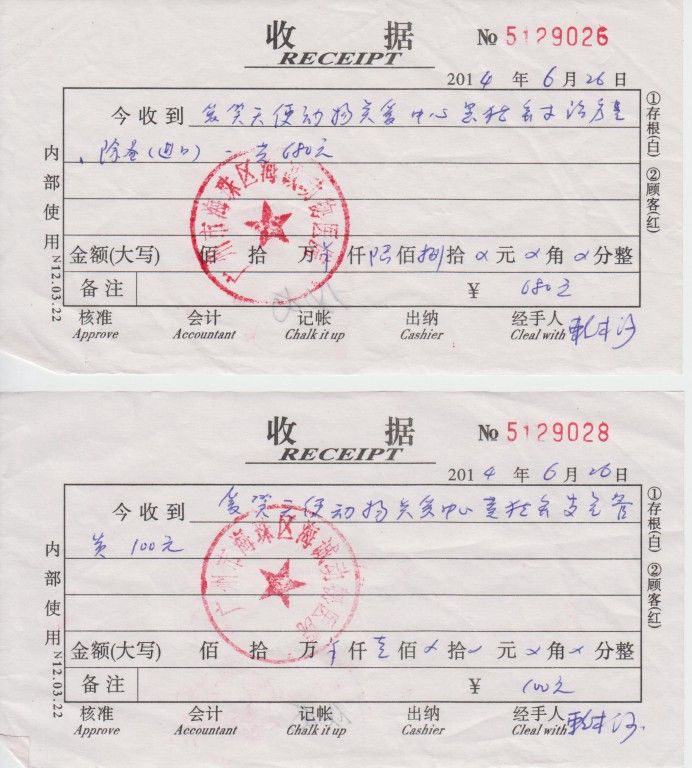 收 据
RECEIPT
№ 5129026
2014 年 6 月 26 日
今收到 天使动物关爱中心
(进口) 一支 680元
金额(大写) 佰 拾 万 仟 陆佰 捌拾 元 角 分整
备注 ¥ 680元
核准 会计 记帐 出纳 经手人
Approve Accountant Chalk it up Cashier Cleal with
内部使用 N12.03.22
①存根(白) ②顾客(红)
广州市海珠区海诚动物医院
收 据
RECEIPT
№ 5129028
2014 年 6 月 26 日
今收到 天使动物关爱中心
100元
金额(大写) 佰 拾 万 仟 壹佰 拾 元 角 分整
备注 ¥ 100元
核准 会计 记帐 出纳 经手人
Approve Accountant Chalk it up Cashier Cleal with
内部使用 N12.03.22
①存根(白) ②顾客(红)
广州市海珠区海诚动物医院